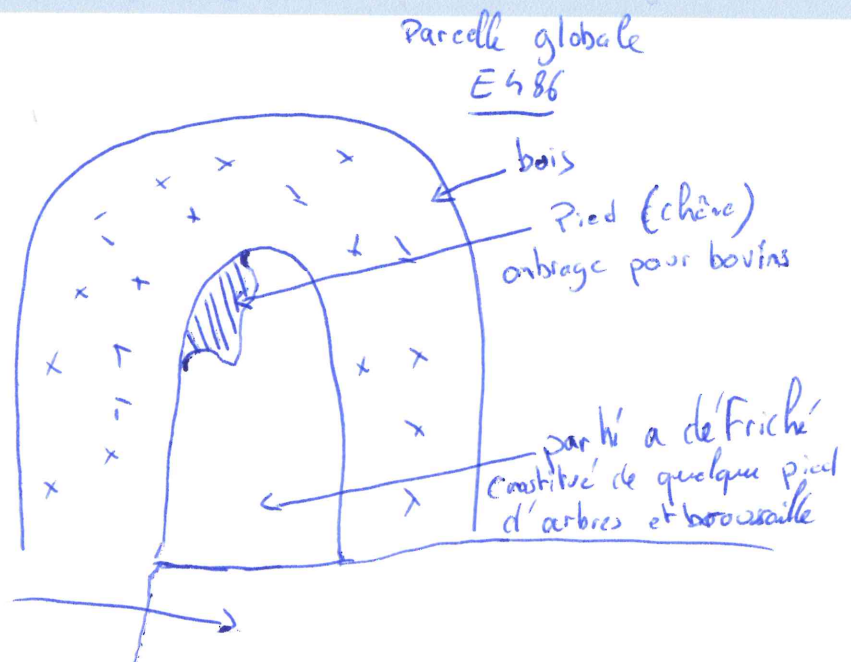 Parcelle globale
E486
bois
Pied (chêne)
onbrage pour bovins
parti a déFriché
Constitué de quelque pied
d'arbres et broussaille